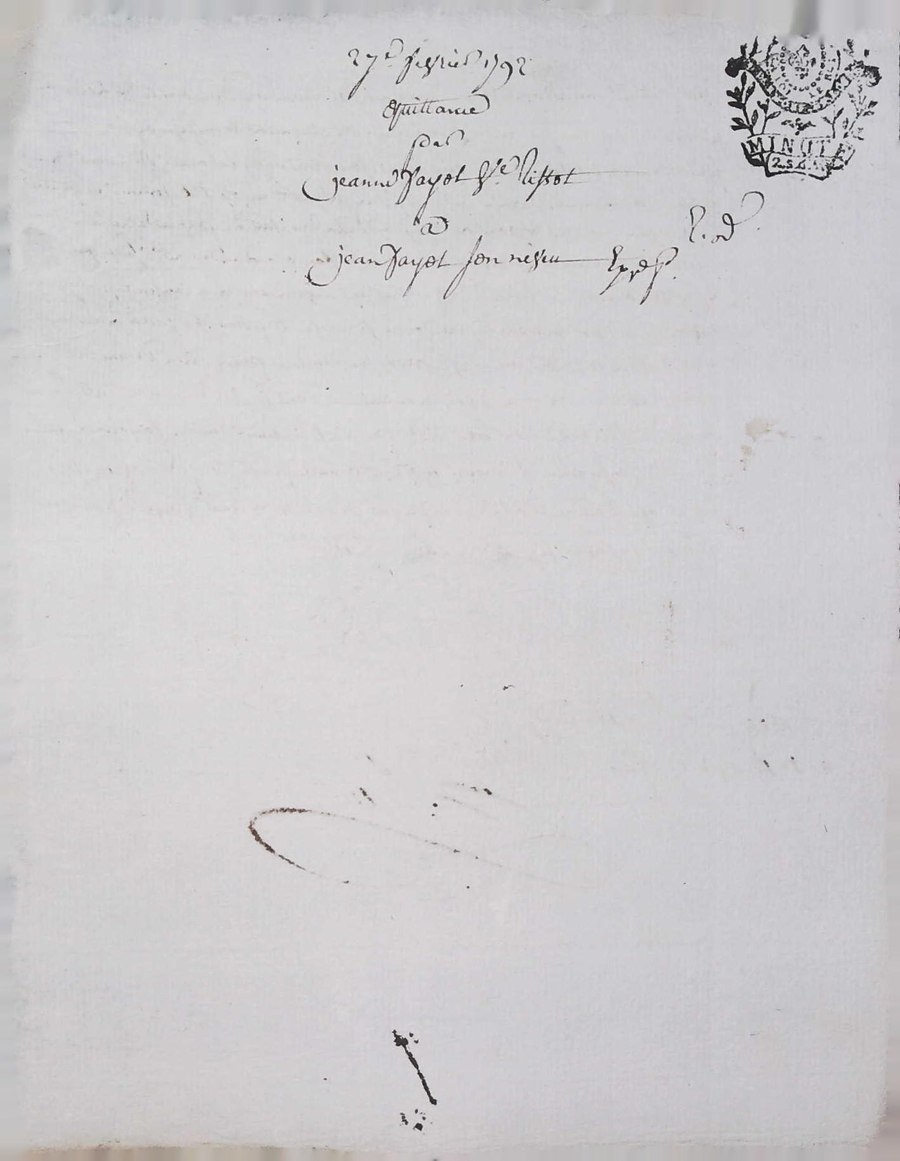 27e. fevrier 1792
Quittance
par
jeanne fayot Ve. Rissot
a
jean fayot son neveu
MINUTE
2.S